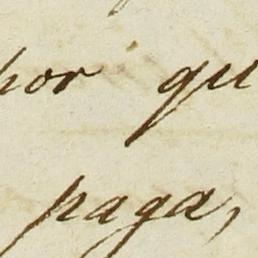 por qu
paga,